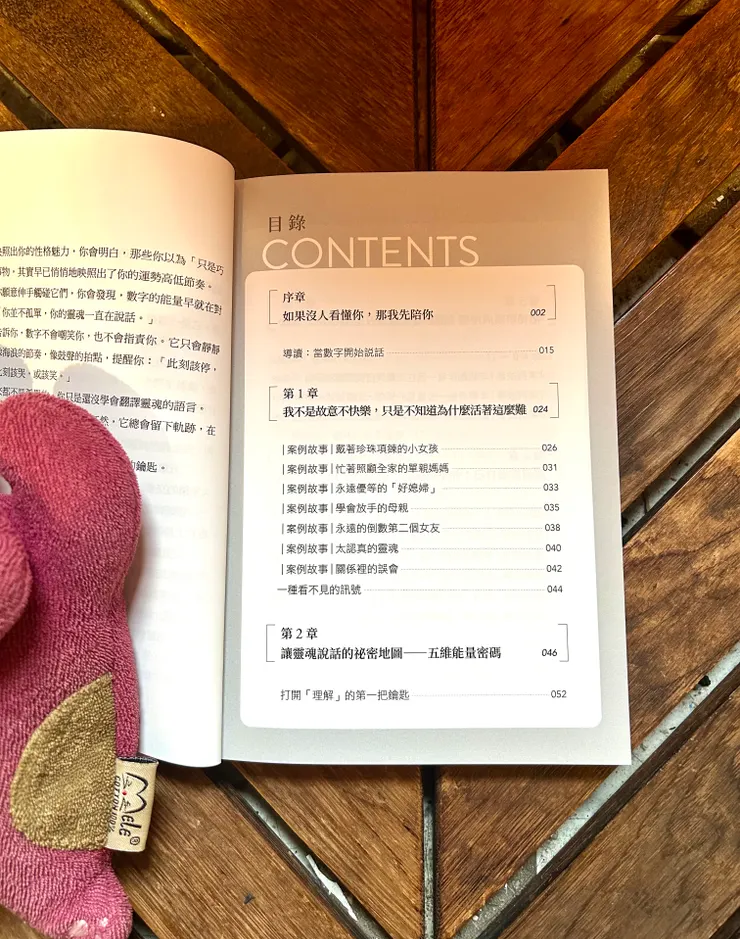 照出你的性格魅力，你會明白，那些你以為「只是巧
物，其實早已悄悄地映照出了你的運勢高低節奏。
願意伸手觸碰它們，你會發現，數字的能量早就在對
「你並不孤單，你的靈魂一直在說話。」
訴你，數字不會嘲笑你，也不會指責你。它只會靜靜
海浪的節奏，像鼓聲的拍點，提醒你：「此刻該停，
此刻該哭，或該笑。」
你只是還沒學會翻譯靈魂的語言。
然，它總會留下軌跡，在
的鑰匙。
目錄
CONTENTS
序章
如果沒人看懂你，那我先陪你 002
導讀：當數字開始說話 015
第 1 章
我不是故意不快樂，只是不知道為什麼活著這麼難 024
|案例故事|戴著珍珠項鍊的小女孩 026
|案例故事|忙著照顧全家的單親媽媽 031
|案例故事|永遠優等的「好媳婦」 033
|案例故事|學會放手的母親 035
|案例故事|永遠的倒數第二個女友 038
|案例故事|太認真的靈魂 040
|案例故事|關係裡的誤會 042
一種看不見的訊號 044
第 2 章
讓靈魂說話的祕密地圖——五維能量密碼 046
打開「理解」的第一把鑰匙 052
MELE®
COTTON 100%